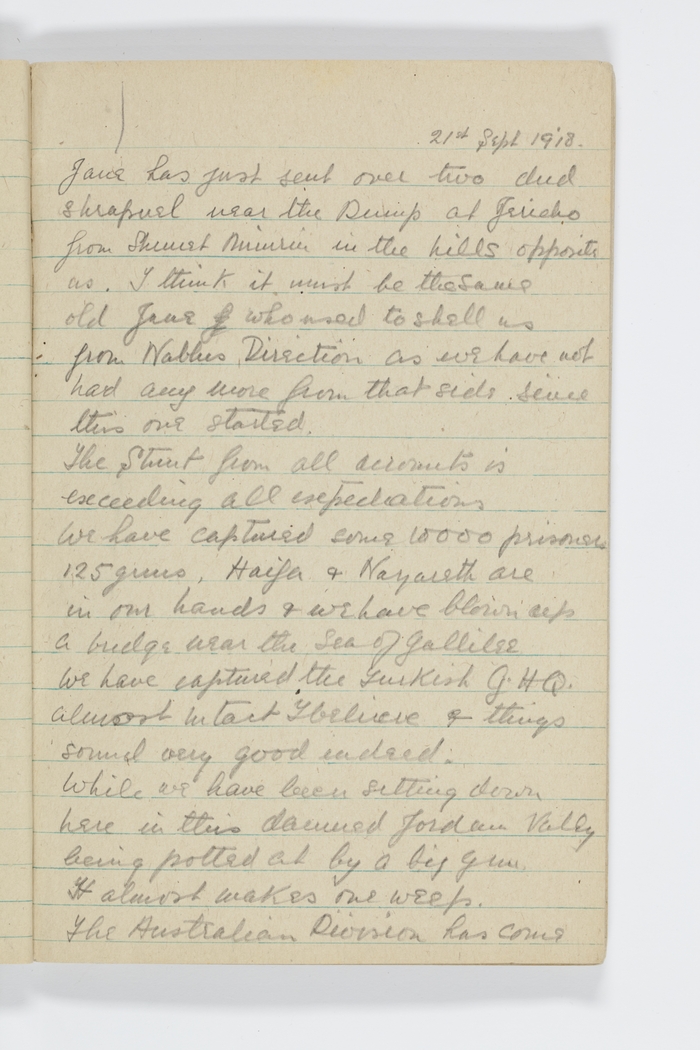 21st Sept 1918.
Jane has just sent over two dud
shrapnel near the Dump at Jericho
from Shunet Nimrin in the hills opposite
us. I think it must be the same
old Jane who used to shell us
from Nablus Direction as we have not
had any more from that side since
this one started.
The Stunt from all accounts is
exceeding all expectations
We have captured some 10000 prisoners
125 guns, Haifa & Nazareth are
in our hands & we have blown up
a bridge near the Sea of Gallilee
We have captured the Turkish G.H.Q.
almost intact I believe & things
sound very good indeed.
While we have been sitting down
here in this damned Jordan Valley
being potted at by a big gun.
It almost makes one weep.
The Australian Division has come